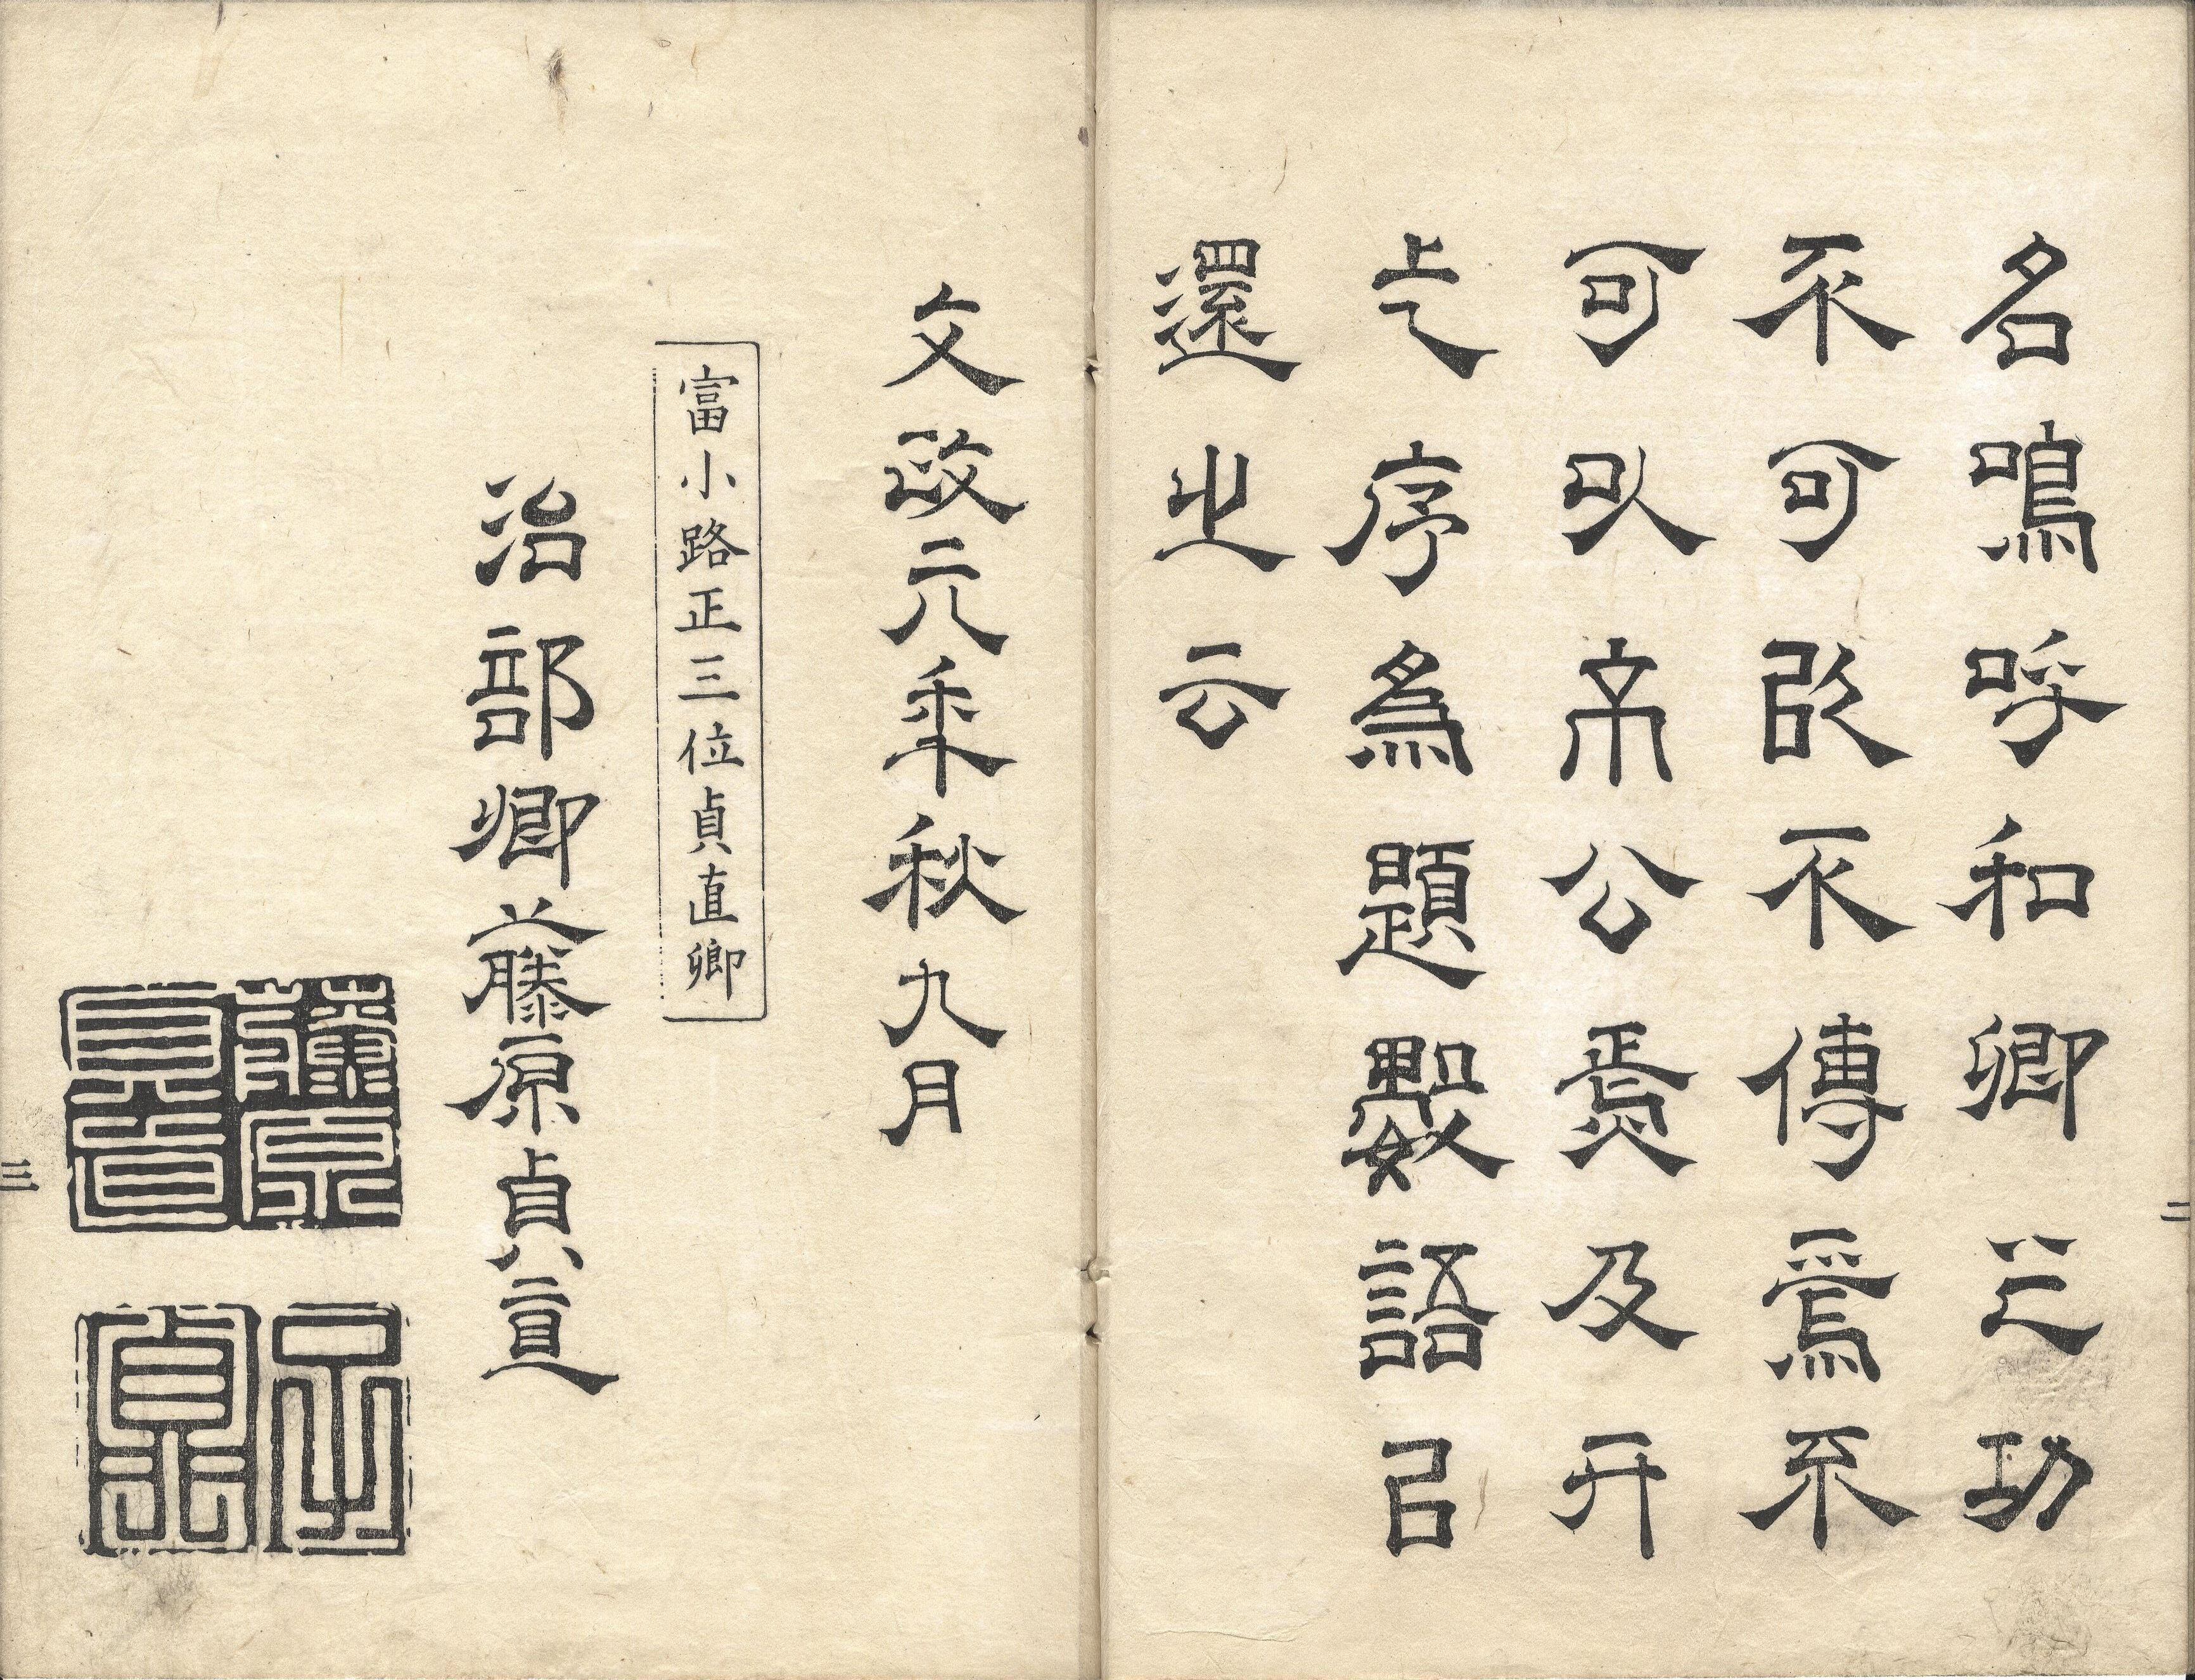 名嗚呼和卿之功
不可以不傳焉不
可以不公焉及亓
乞序為題數語㠯
還之云
文政元年秋九月
富小路正三位貞直卿
治部卿藤原貞直
藤原貞直
二
三